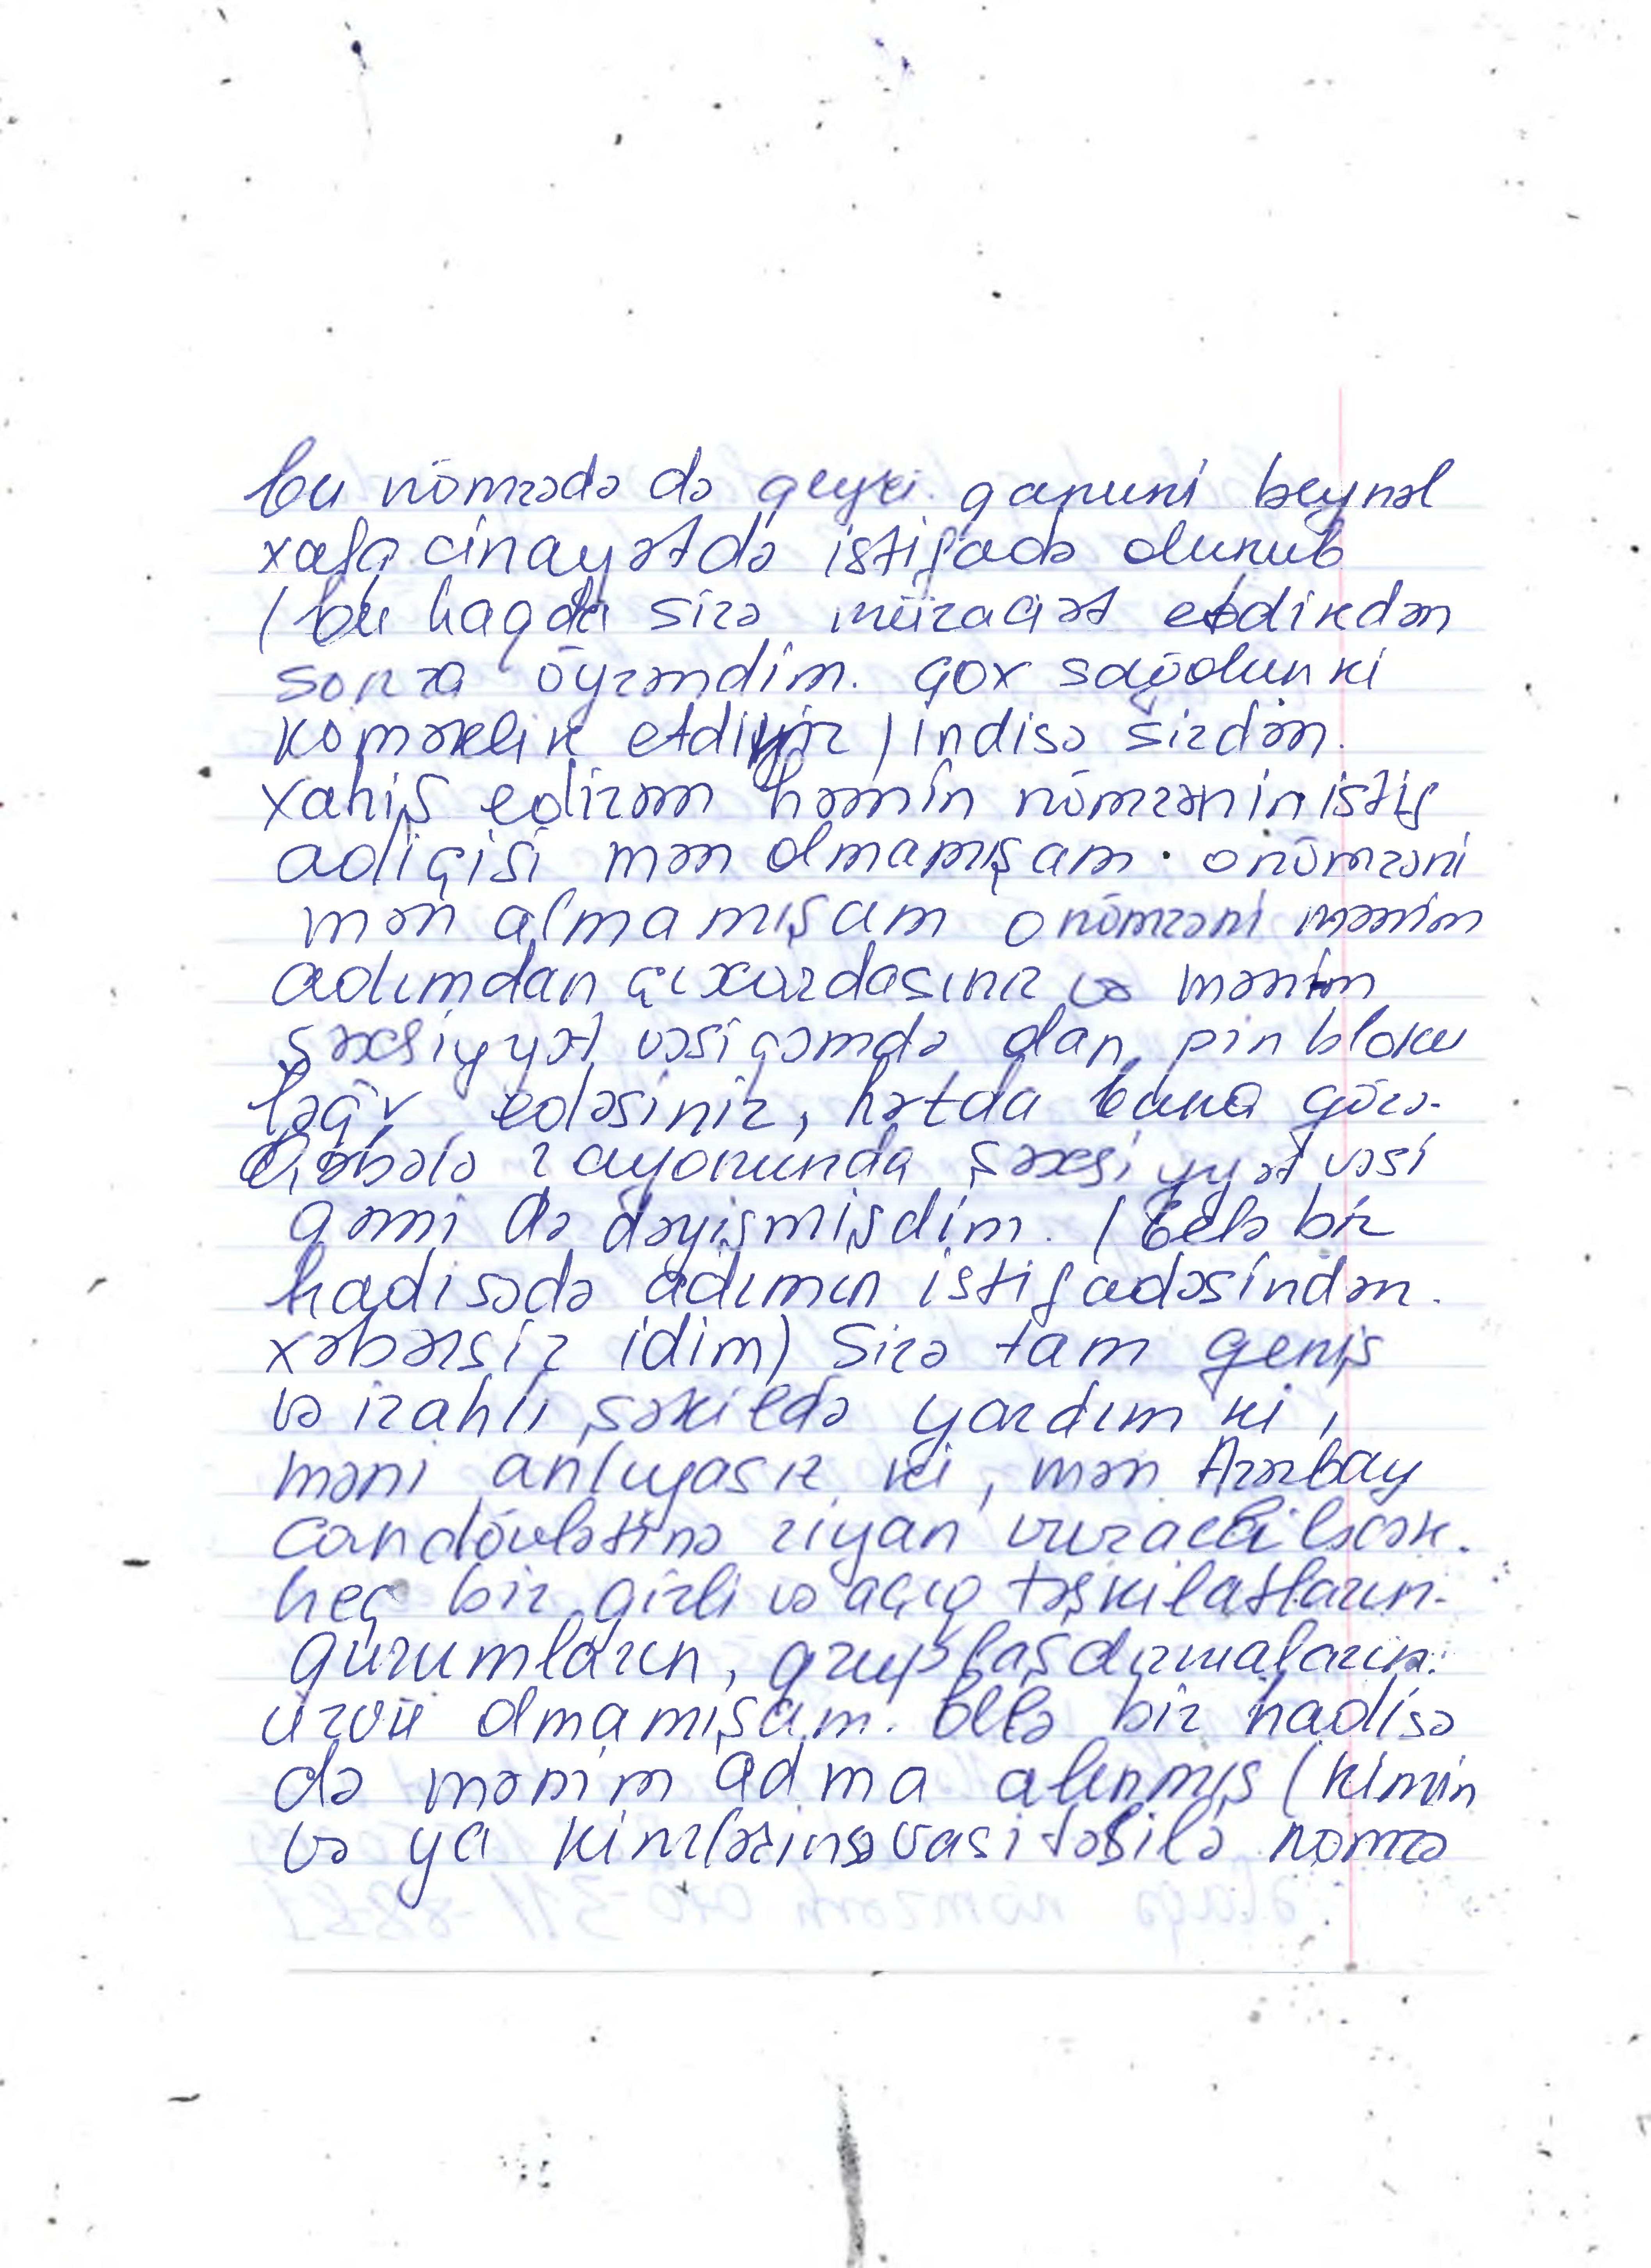 bu nömrədə də qeyri qanuni beynəl
xalq cinayətdə istifadə olunub
(bu haqda sizə müraciət etdikdən
sonra öyrəndim. Çox sağolun ki
köməklik etdiyiz) indisə sizdən
xahiş edirəm həmin nömrənin istif
adiçisi mən olmamışam. o nömrəni
mən almamışam o nömrəni mənim
adımdan çıxardasınız və mənim
şəxsiyyət vəsiqəmdə olan pin bloku
ləğv edəsiniz, hətda buna görə
Qəbələ rayonunda şəxsiyyət vəsi
qəmi də dəyişmişdim. (Belə bir
hadisədə adımın istifadəsindən
xəbərsiz idim) Sizə tam geniş
və izahlı şəkildə yazdım ki,
məni anlıyasız ki, mən Azərbay
can dövlətinə ziyan vuracbiləcək
heç bir gizli və açıq təşkilatların
qurumların, qruplaşdırmaların
üzvü olmamışam. Belə bir hadisə
də mənim adıma alınmış (kimin
və ya kimlərinsə vasitəsilə nömrə